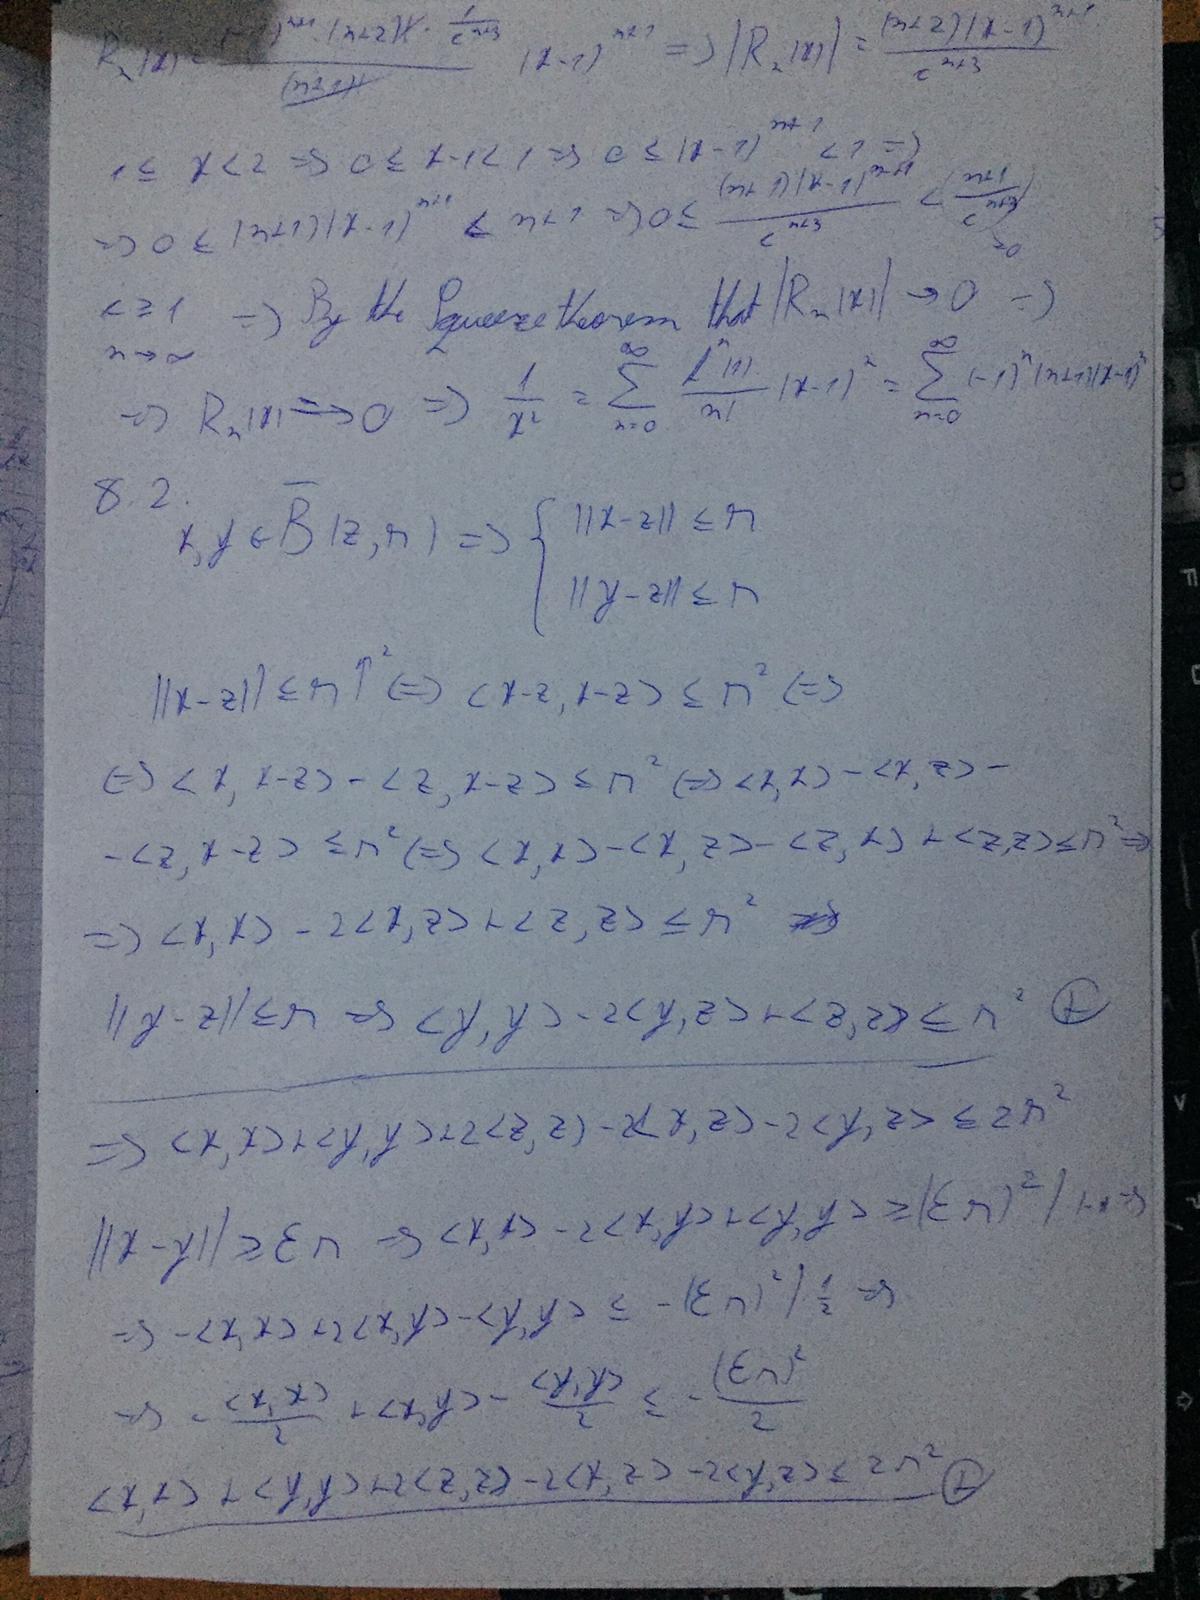 R_n(x) = (-1)^{n+1} · (n+2)! · 1/c^{n+3} / (n+1)! (x-1)^{n+1} => |R_n(x)| = (n+2)(x-1)^{n+1} / c^{n+3}
1 ≤ x < 2 => 0 ≤ x-1 < 1 => 0 ≤ (x-1)^{n+1} < 1 =>
=> 0 ≤ (n+1)(x-1)^{n+1} < n+1 => 0 ≤ (n+1)(x-1)^{n+1} / c^{n+3} < (n+1 / c^{n+3}) →0
c ≥ 1 => By the Squeeze theorem that |R_n(x)| → 0 =>
n → ∞
=> R_n(x) → 0 => 1/x² = ∑_{n=0}^{∞} f^n(1)/n! (x-1)^2 = ∑_{n=0}^{∞} (-1)^n (n+1)(x-1)^n
8.2.
x, y ∈ B̅(z, r) => { ||x-z|| ≤ r
||y-z|| ≤ r
||x-z|| ≤ r ↑² <=> <x-z, x-z> ≤ r² <=>
<=> <x, x-z> - <z, x-z> ≤ r² <=> <x,x> - <x,z> -
- <z, x-z> ≤ r² <=> <x,x> - <x,z> - <z,x> + <z,z> ≤ r² =>
=> <x,x> - 2<x,z> + <z,z> ≤ r²
||y-z|| ≤ r => <y,y> - 2<y,z> + <z,z> ≤ r² ⊕
=> <x,x> + <y,y> + 2<z,z> - 2<x,z> - 2<y,z> ≤ 2r²
||x-y|| ≥ εr => <x,x> - 2<x,y> + <y,y> ≥ (εr)² =>
=> - <x,x> + 2<x,y> - <y,y> ≤ - (εr)² / 1/2 =>
=> - <x,x>/2 + <x,y> - <y,y>/2 ≤ - (εr)²/2
<x,x> + <y,y> + 2<z,z> - 2<x,z> - 2<y,z> ≤ 2r² ⊕